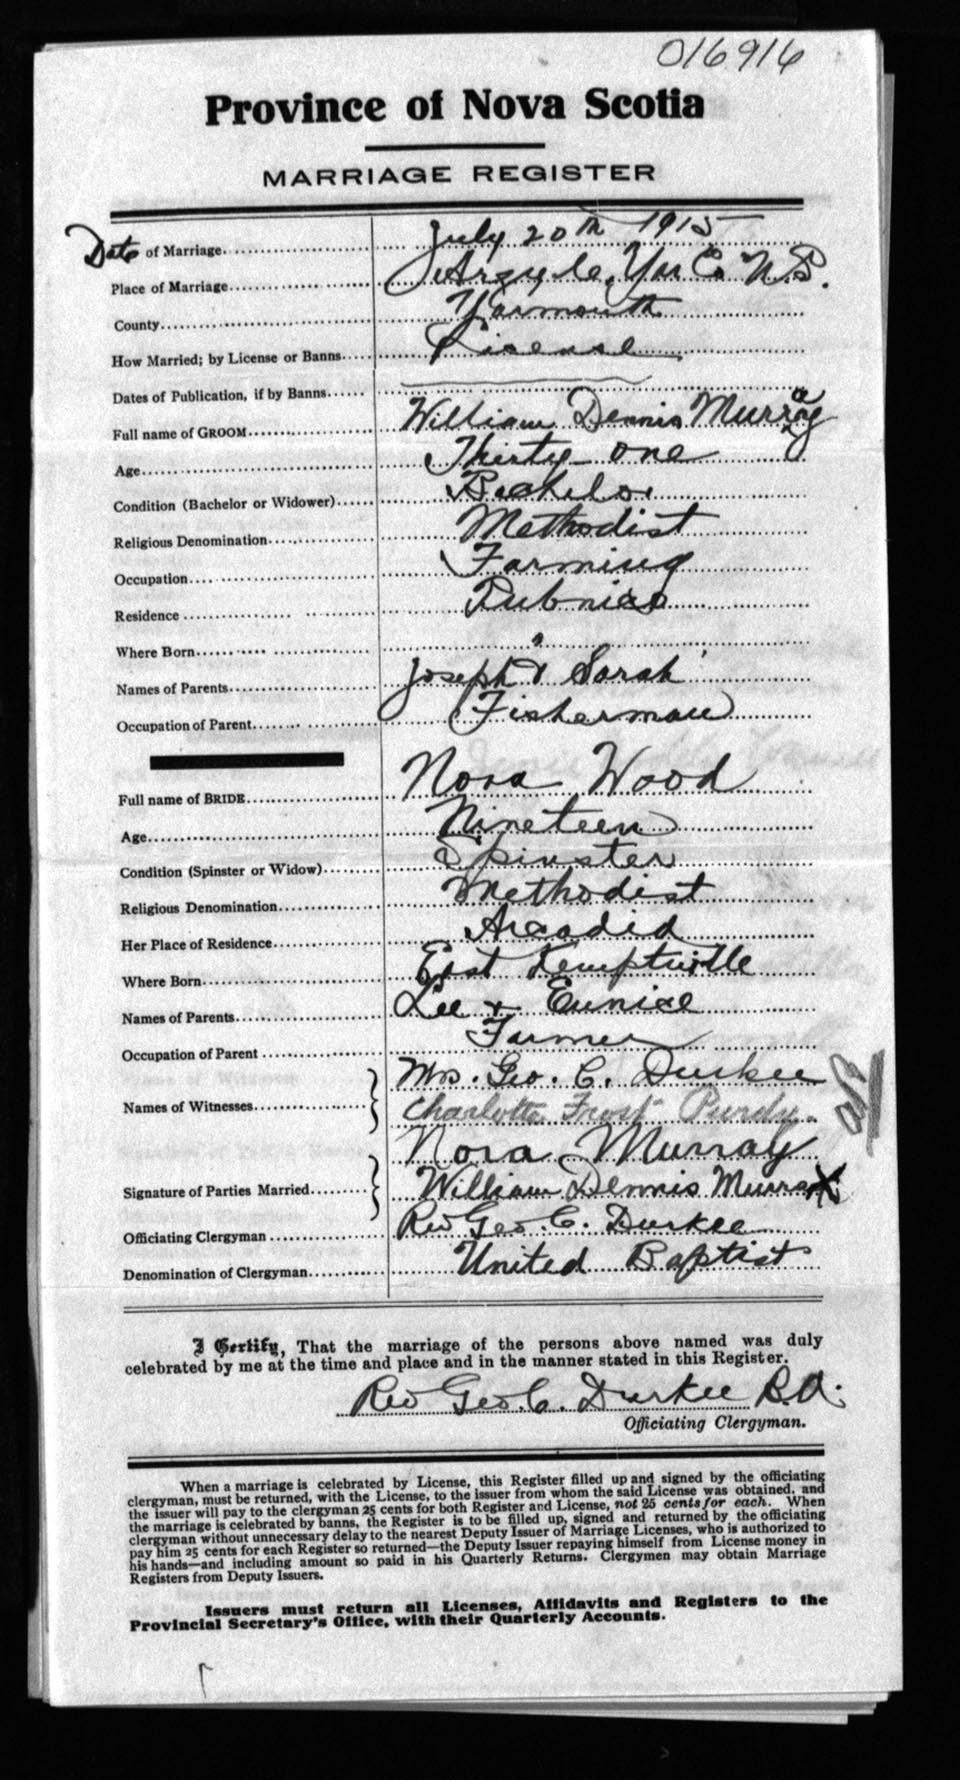 016916
Province of Nova Scotia
MARRIAGE REGISTER
Date of Marriage July 20th 1915
Place of Marriage Argyle, Yar Co N.S.
County Yarmouth
How Married; by License or Banns License
Dates of Publication, if by Banns
Full name of GROOM William Dennis Murray
Age Thirty-one
Condition (Bachelor or Widower) Bachelor
Religious Denomination Methodist
Occupation Farming
Residence Pubnico
Where Born "
Names of Parents Joseph & Sarah
Occupation of Parent Fisherman
Full name of BRIDE Nora Wood
Age Nineteen
Condition (Spinster or Widow) Spinster
Religious Denomination Methodist
Her Place of Residence Arcadia
Where Born East Kemptville
Names of Parents Lee & Eunice
Occupation of Parent Farmer
Names of Witnesses Mrs. Geo. C. Durkee
Charlotte Frost Purdy.
Signature of Parties Married Nora Murray
William Dennis Murray X
Officiating Clergyman Rev Geo. C. Durkee
Denomination of Clergyman United Baptist
I Certify, That the marriage of the persons above named was duly
celebrated by me at the time and place and in the manner stated in this Register.
Rev Geo. C. Durkee B.A.
Officiating Clergyman.
When a marriage is celebrated by License, this Register filled up and signed by the officiating
clergyman, must be returned, with the License, to the issuer from whom the said License was obtained, and
the issuer will pay to the clergyman 25 cents for both Register and License, not 25 cents for each. When
the marriage is celebrated by banns, the Register is to be filled up, signed and returned by the officiating
clergyman without unnecessary delay to the nearest Deputy Issuer of Marriage Licenses, who is authorized to
pay him 25 cents for each Register so returned—the Deputy Issuer repaying himself from License money in
his hands—and including amount so paid in his Quarterly Returns. Clergymen may obtain Marriage
Registers from Deputy Issuers.
Issuers must return all Licenses, Affidavits and Registers to the
Provincial Secretary's Office, with their Quarterly Accounts.